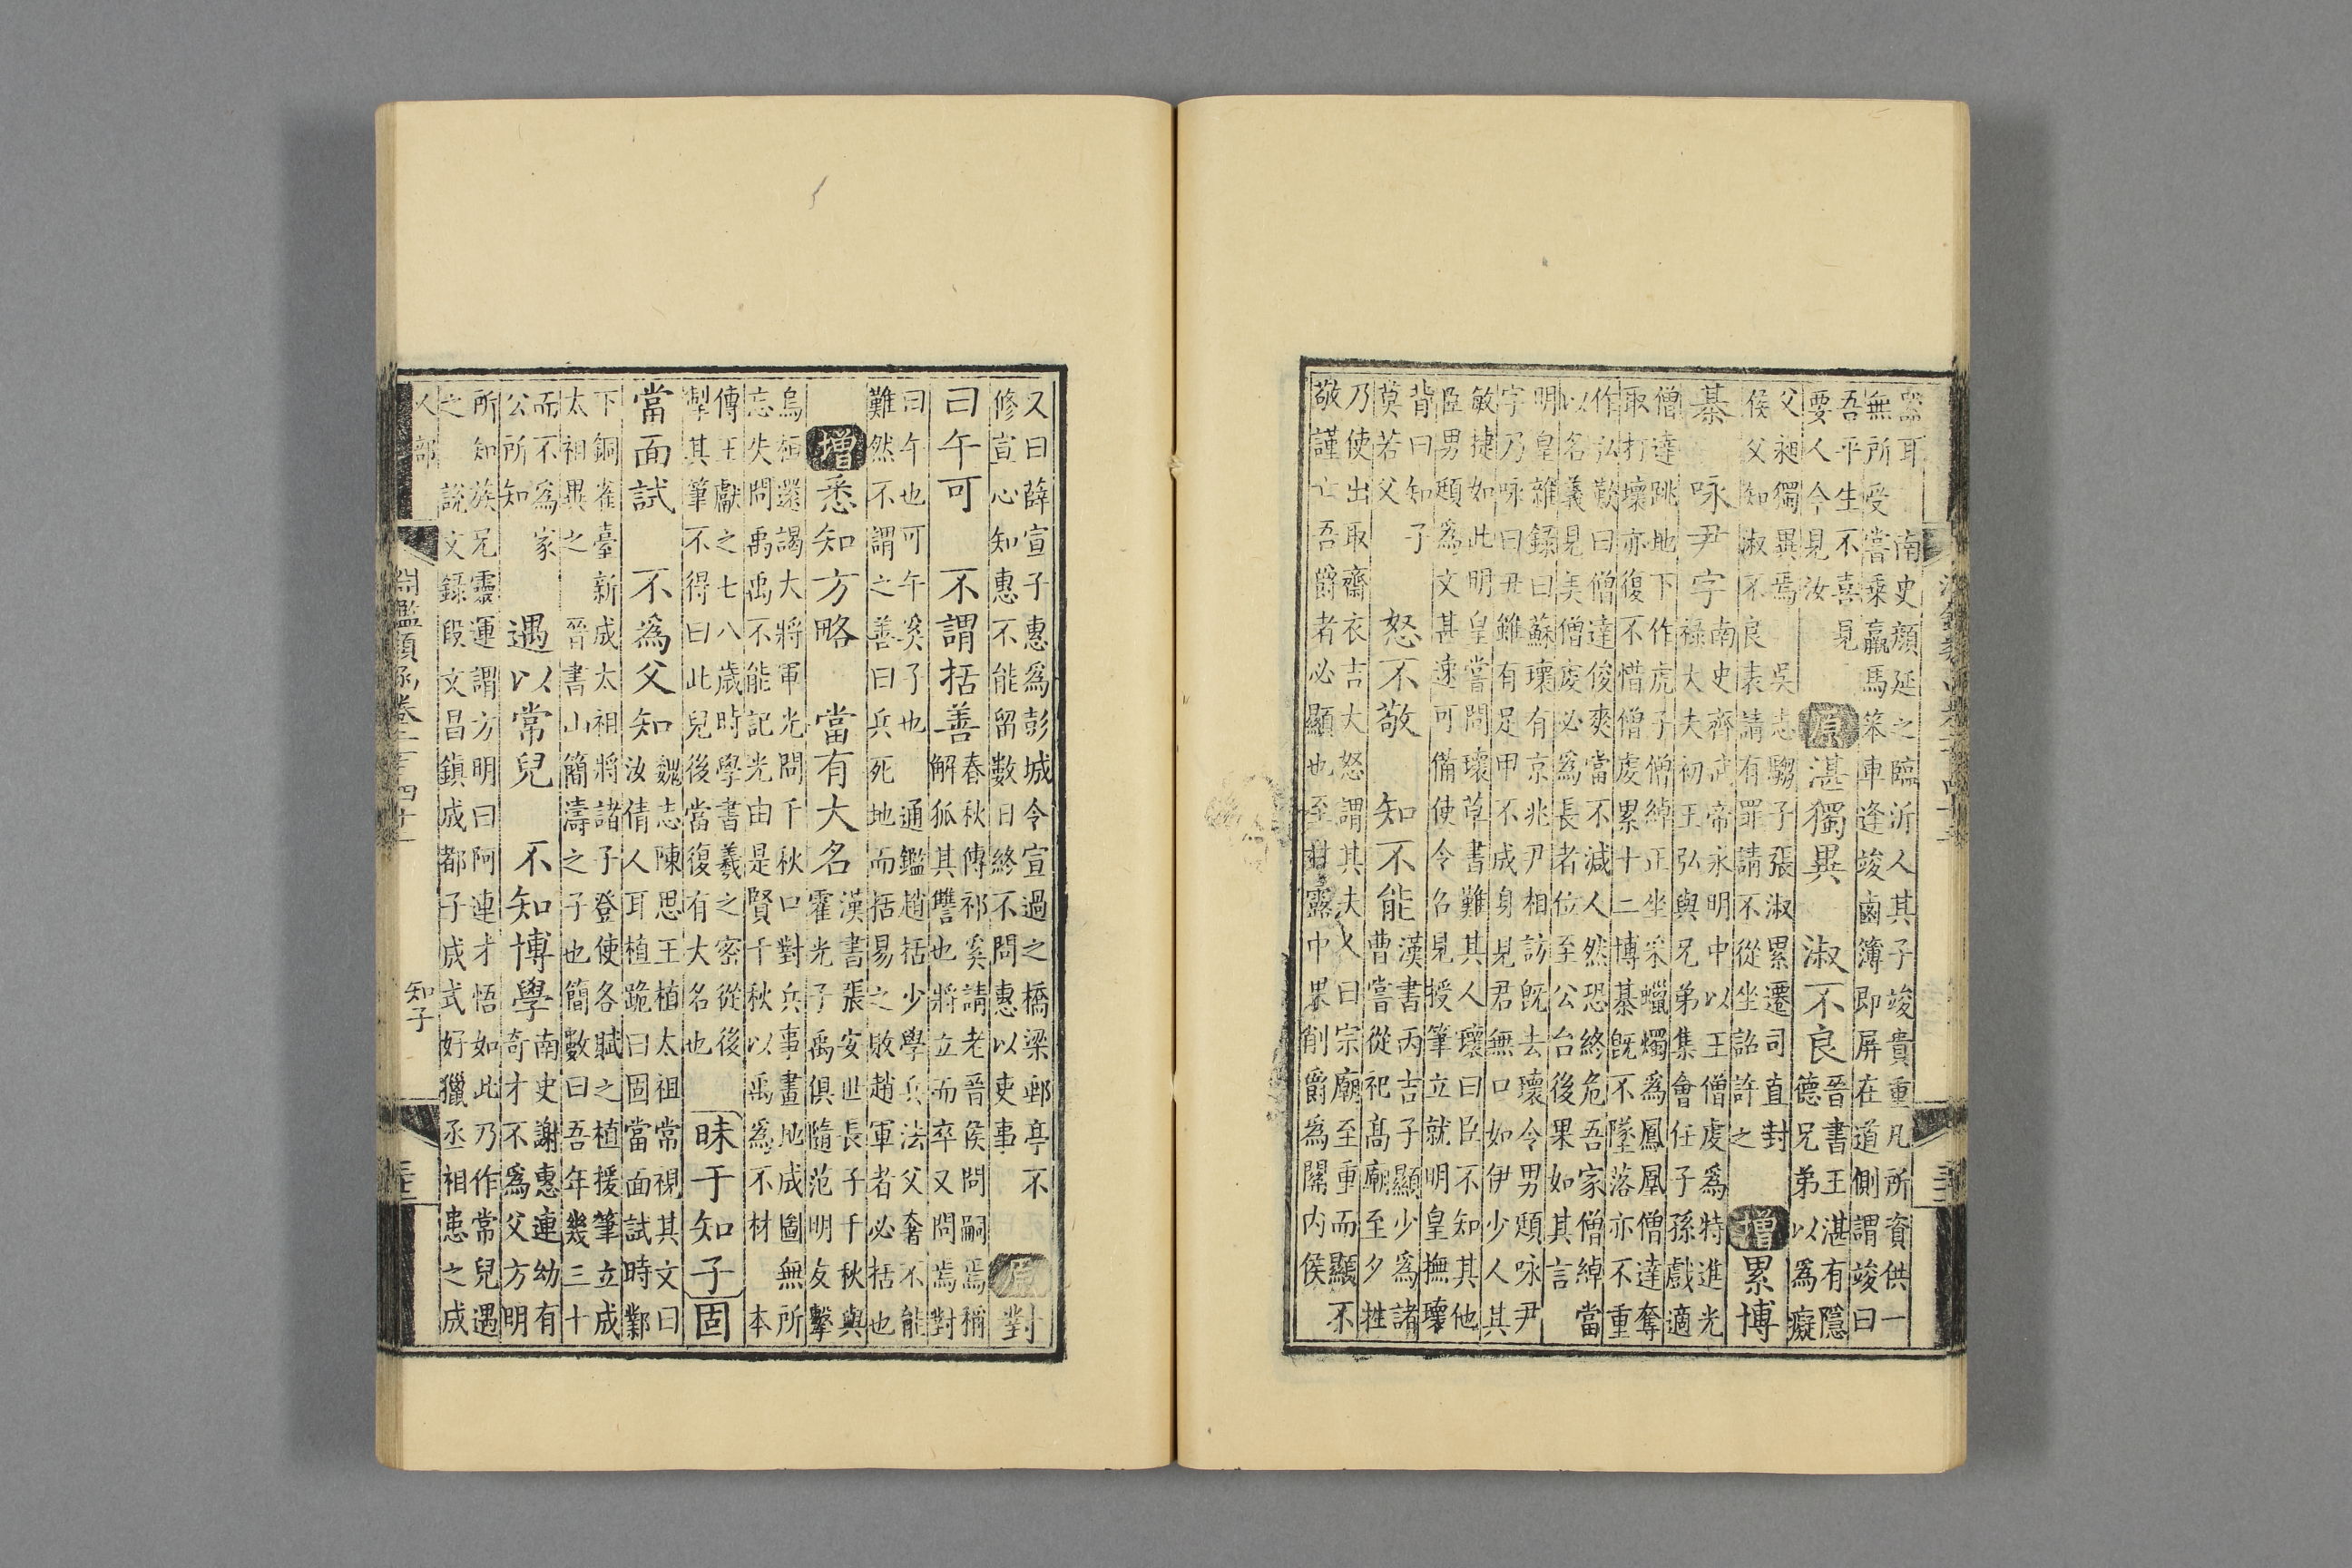 器耳　南史顏延之臨沂人其子竣貴重凡所資供一
無所受嘗乘羸馬笨車逢竣鹵簿即屏在道側謂竣曰
吾平生不喜見
要人今見汝
原 湛獨異　淑不良
晉書王湛有隱
德兄弟以爲癡
父昶獨異焉　吳志騶子張淑累遷司直封
侯父知淑不良表請有罪請不從坐詔許之
增 累博
棊　咏尹字
南史齊武帝永明中以王僧虔爲特進光
祿大夫初王弘與兄弟集會任子孫戲適
僧達跳地下作虎子僧綽正坐采蠟燭爲鳳凰僧達奪
取打壞亦復不惜僧虔累十二博棊既不墜落亦不重
作弘歎曰僧達俊爽當不減人然恐終危吾家僧綽當
以名義見美僧虔必爲長者位至公台後果如其言
明皇雜錄曰蘇瓌有京兆尹相訪既去瓌令男頲咏尹
字乃咏曰丑雖有足甲不成身見君無口如伊少人其
敏捷如此明皇嘗問瓌草書難其人瓌曰臣不知其他
臣男頲爲文甚速可備使令召見授筆立就明皇撫瓌
背曰知子
莫若父
怒不敬　知不能
漢書丙吉子顯少爲諸
曹嘗從祀高廟至夕牲
乃使出取齋衣吉大怒謂其夫人曰宗廟至重而顯不
敬謹亡吾爵者必顯也至甘露中果削爵爲關內侯
又曰薛宣子惠爲彭城令宣過之橋梁郵亭不
修宣心知惠不能留數日終不問惠以吏事
原 對
曰午可　不謂括善
春秋傳祁奚請老晉侯問嗣焉稱
解狐其讐也將立而卒又問焉對
曰午也可午奚子也　通鑑趙括少學兵法父奢不能
難然不謂之善曰兵死地而括易之敗趙軍者必括也
增 悉知方略　當有大名
漢書張安世長子千秋與
霍光子禹俱隨范明友擊
烏桓還謁大將軍光問千秋口對兵事畫地成圖無所
忘失問禹禹不能記光由是賢千秋以禹爲不材　本
傳王獻之七八歲時學書羲之密從後
掣其筆不得曰此兒後當復有大名也
昧于知子 固
當面試　不爲父知
魏志陳思王植太祖常視其文曰
汝倩人耳植跪曰固當面試時鄴
下銅雀臺新成太祖將諸子登使各賦之植援筆立成
太祖異之　晉書山簡濤之子也簡數曰吾年幾三十
而不爲家
公所知
遇以常兒　不知博學
南史謝惠連幼有
奇才不爲父方明
所知族兄靈運謂方明曰阿連才悟如此乃作常兒遇
之　說文錄段文昌鎮成都子成式好獵丞相患之成
人部
淵鑑類函卷二百四十一
知子